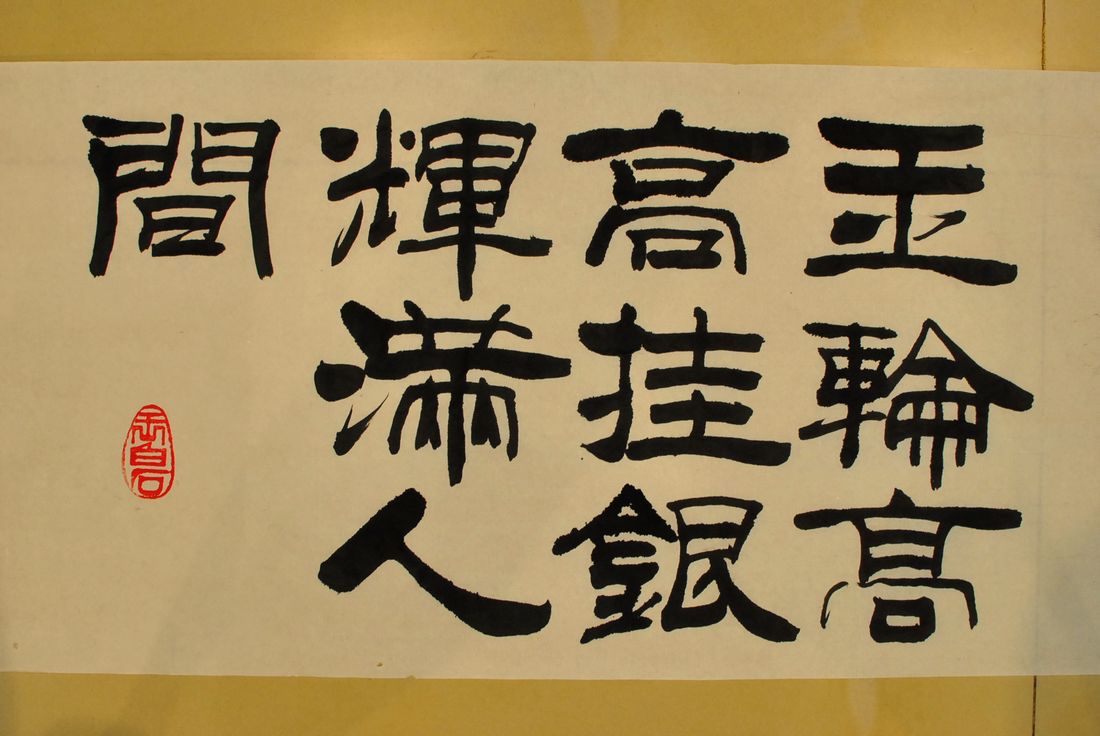 玉輪高
高挂銀
輝滿人
間